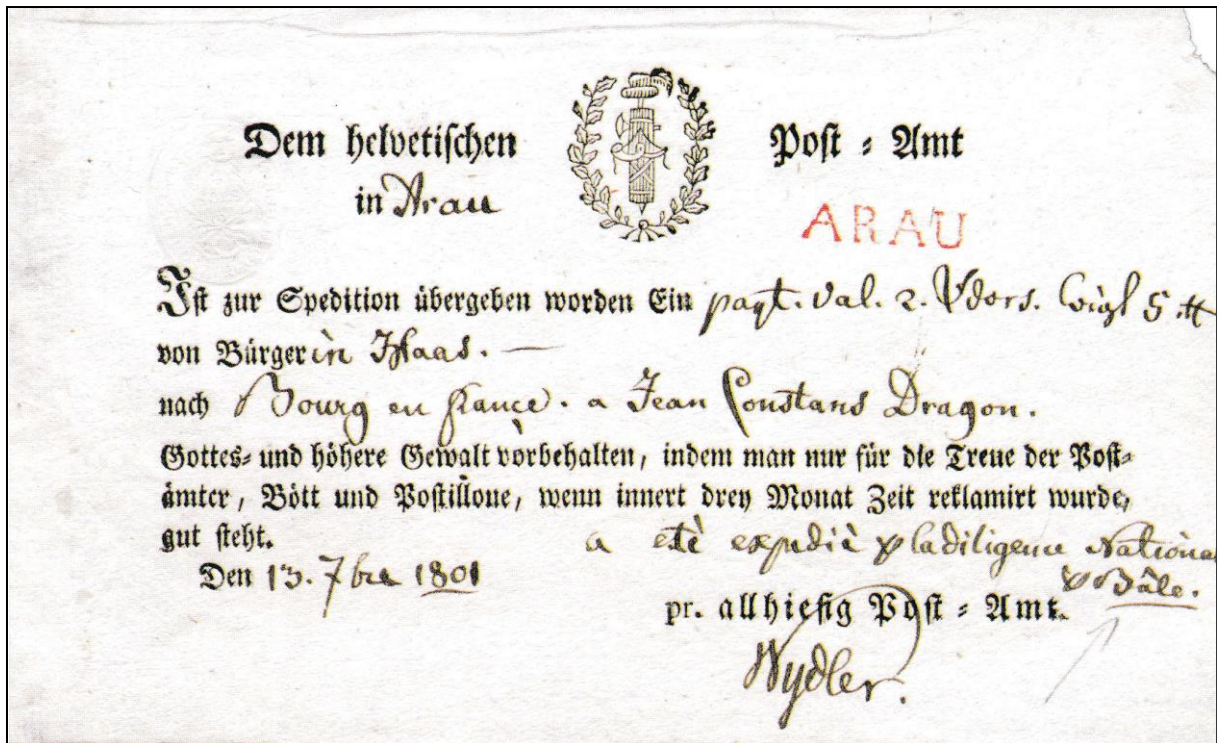 Dem helvetischen Post = Amt
in Arau
ARAU
Ist zur Spedition übergeben worden Ein paqt. val. 2. 5 ℔
von Bürgerin Haas. —
nach Bourg en france. a Jean Constans Dragon.
Gottes= und höhere Gewalt vorbehalten, indem man nur für die Treue der Post=
ämter, Bött und Postillone, wenn innert drey Monat Zeit reklamirt wurde,
gut steht.
a etè expediè p ladiligence Nationa
Den 13. 7bre 1801
p Bâle.
pr. allhiesig Post = Amt.
Wydler.